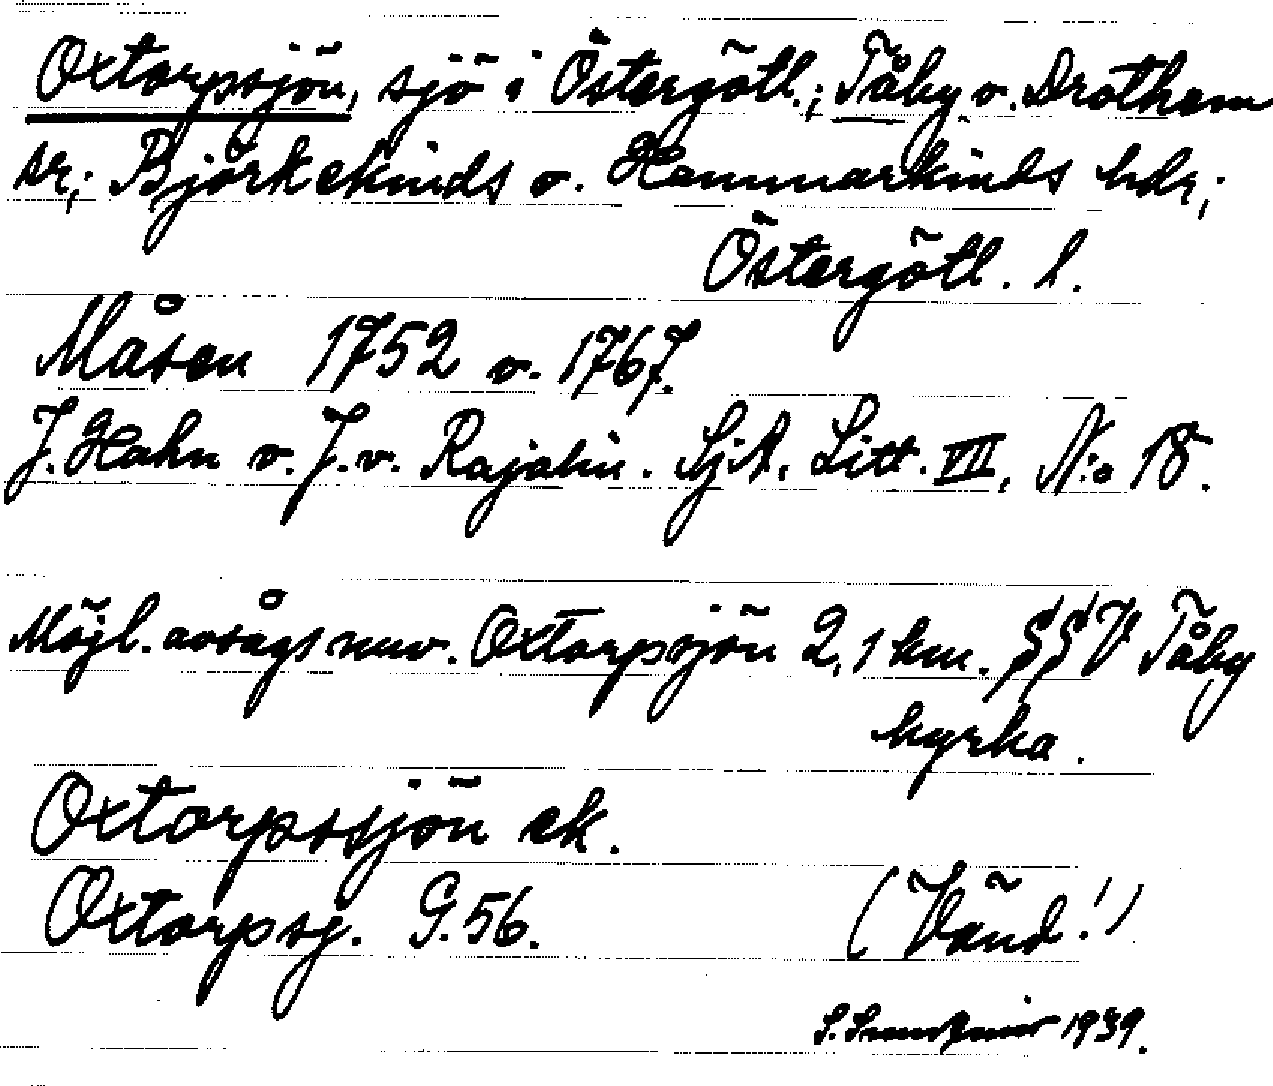 Oxtorpssjön, sjö i Östergötl.; Tåby o. Drothem
sr; Björkekinds o. Hammarkinds hdr;
Östergötl. l.
Måsen 1752 o. 1767.
J. Hahn o. J. v. Rajalin. SjA. Litt. VII, N:o 18.
Möjl. avsågs nuv. Oxtorpssjön 2,1 km. SSV Tåby
kyrka.
Oxtorpssjön ek.
Oxtorpsj. G. 56.
(Vänd!)
S. 1939.